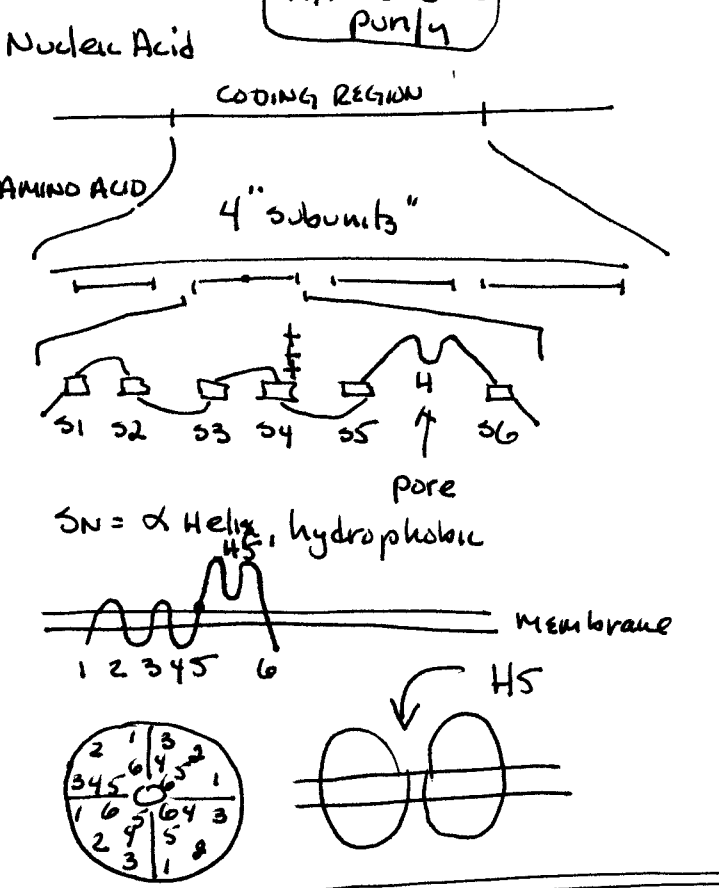 purify
Nucleic Acid
CODING REGION
AMINO ACID
4 "subunits"
+
+
+
S1 S2 S3 S4 S5 H S6
pore
SN = α Helix, hydrophobic
H5
membrane
1 2 3 4 5 6
H5
1 3
2 6 4 2
3 4 5 6 5 1
1 6 5 6 4 3
2 4 5 2
3 1